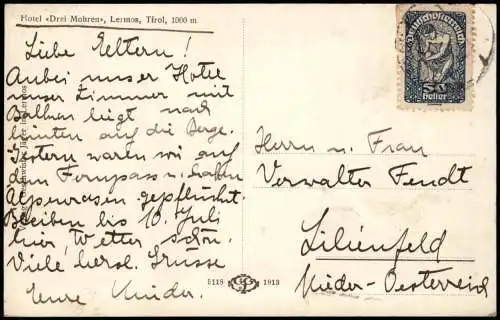 Hotel «Drei Mohren», Lermos, Tirol, 1000 m.
Liebe Eltern!
Anbei unser Hotel
unser Zimmer mit
Balkon liegt nach
hinten auf die Berge.
Gestern waren wir auf
dem Fernpass u. haben
Alpenrosen gepflückt.
Bleiben bis 10. Juli
hier, Wetter schön.
Viele herzl. Grüsse
Eure Kinder.
Deutschösterreich
50
Heller
Herrn u. Frau
Verwalter Fendt
Lilienfeld
Nieder-Oesterreich
5118 1913